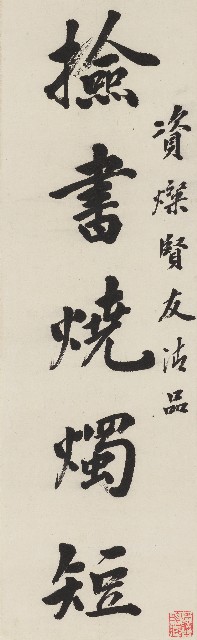 資燦賢友清品
撿書燒燭短